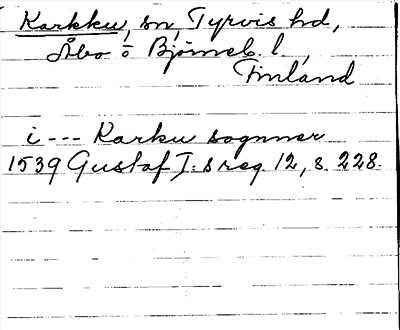 Karkku, sn, Tyrvis hd,
Åbo o Björneb. l,
Finland
i --- Karku sognner
1539 Gustaf I:s reg. 12, s. 228.